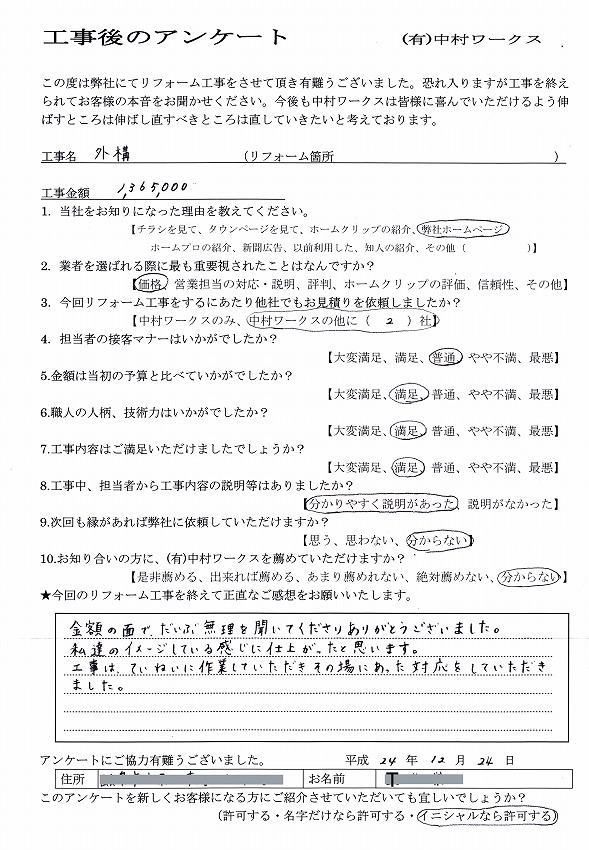 工事後のアンケート (有)中村ワークス
この度は弊社にてリフォーム工事をさせて頂き有難うございました。恐れ入りますが工事を終え
られてお客様の本音をお聞かせください。今後も中村ワークスは皆様に喜んでいただけるよう伸
ばすところは伸ばし直すべきところは直していきたいと考えております。
工事名 外構 (リフォーム箇所 )
工事金額 1,365,000
1. 当社をお知りになった理由を教えてください。
【チラシを見て、タウンページを見て、ホームクリップの紹介、弊社ホームページ
ホームプロの紹介、新聞広告、以前利用した、知人の紹介、その他( )】
2. 業者を選ばれる際に最も重要視されたことはなんですか?
【価格、営業担当の対応・説明、評判、ホームクリップの評価、信頼性、その他】
3. 今回リフォーム工事をするにあたり他社でもお見積りを依頼しましたか?
【中村ワークスのみ、中村ワークスの他に( 2 )社】
4. 担当者の接客マナーはいかがでしたか?
【大変満足、満足、普通、やや不満、最悪】
5.金額は当初の予算と比べていかがでしたか?
【大変満足、満足、普通、やや不満、最悪】
6.職人の人柄、技術力はいかがでしたか?
【大変満足、満足、普通、やや不満、最悪】
7.工事内容はご満足いただけましたでしょうか?
【大変満足、満足、普通、やや不満、最悪】
8.工事中、担当者から工事内容の説明等はありましたか?
【分かりやすく説明があった、説明がなかった】
9.次回も縁があれば弊社に依頼していただけますか?
【思う、思わない、分からない】
10.お知り合いの方に、(有)中村ワークスを薦めていただけますか?
【是非薦める、出来れば薦める、あまり薦めれない、絶対薦めない、分からない】
★今回のリフォーム工事を終えて正直なご感想をお願いいたします。
金額の面で、だいぶ無理を聞いてくださりありがとうございました。
私達のイメージしている感じに仕上がったと思います。
工事は、ていねいに作業していただきその場にあった対応をしていただき
ました。
アンケートにご協力有難うございました。 平成 24 年 12 月 24 日
住所 お名前 T
このアンケートを新しくお客様になる方にご紹介させていただいても宜しいでしょうか?
(許可する・名字だけなら許可する・イニシャルなら許可する)